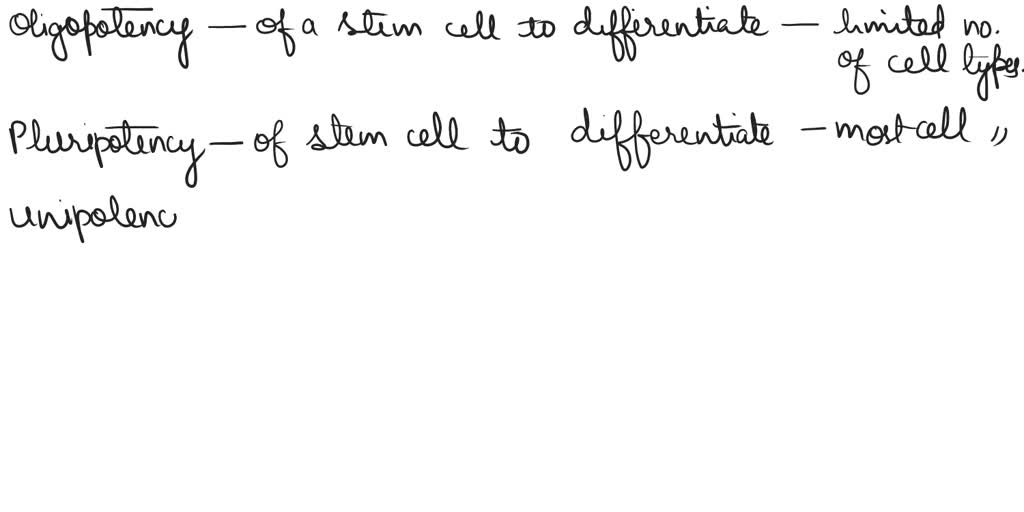 Oligopotency — of a stem cell to differentiate — limited no.
of cell types.
Pluripotency — of stem cell to differentiate — most cell "
unipotenc